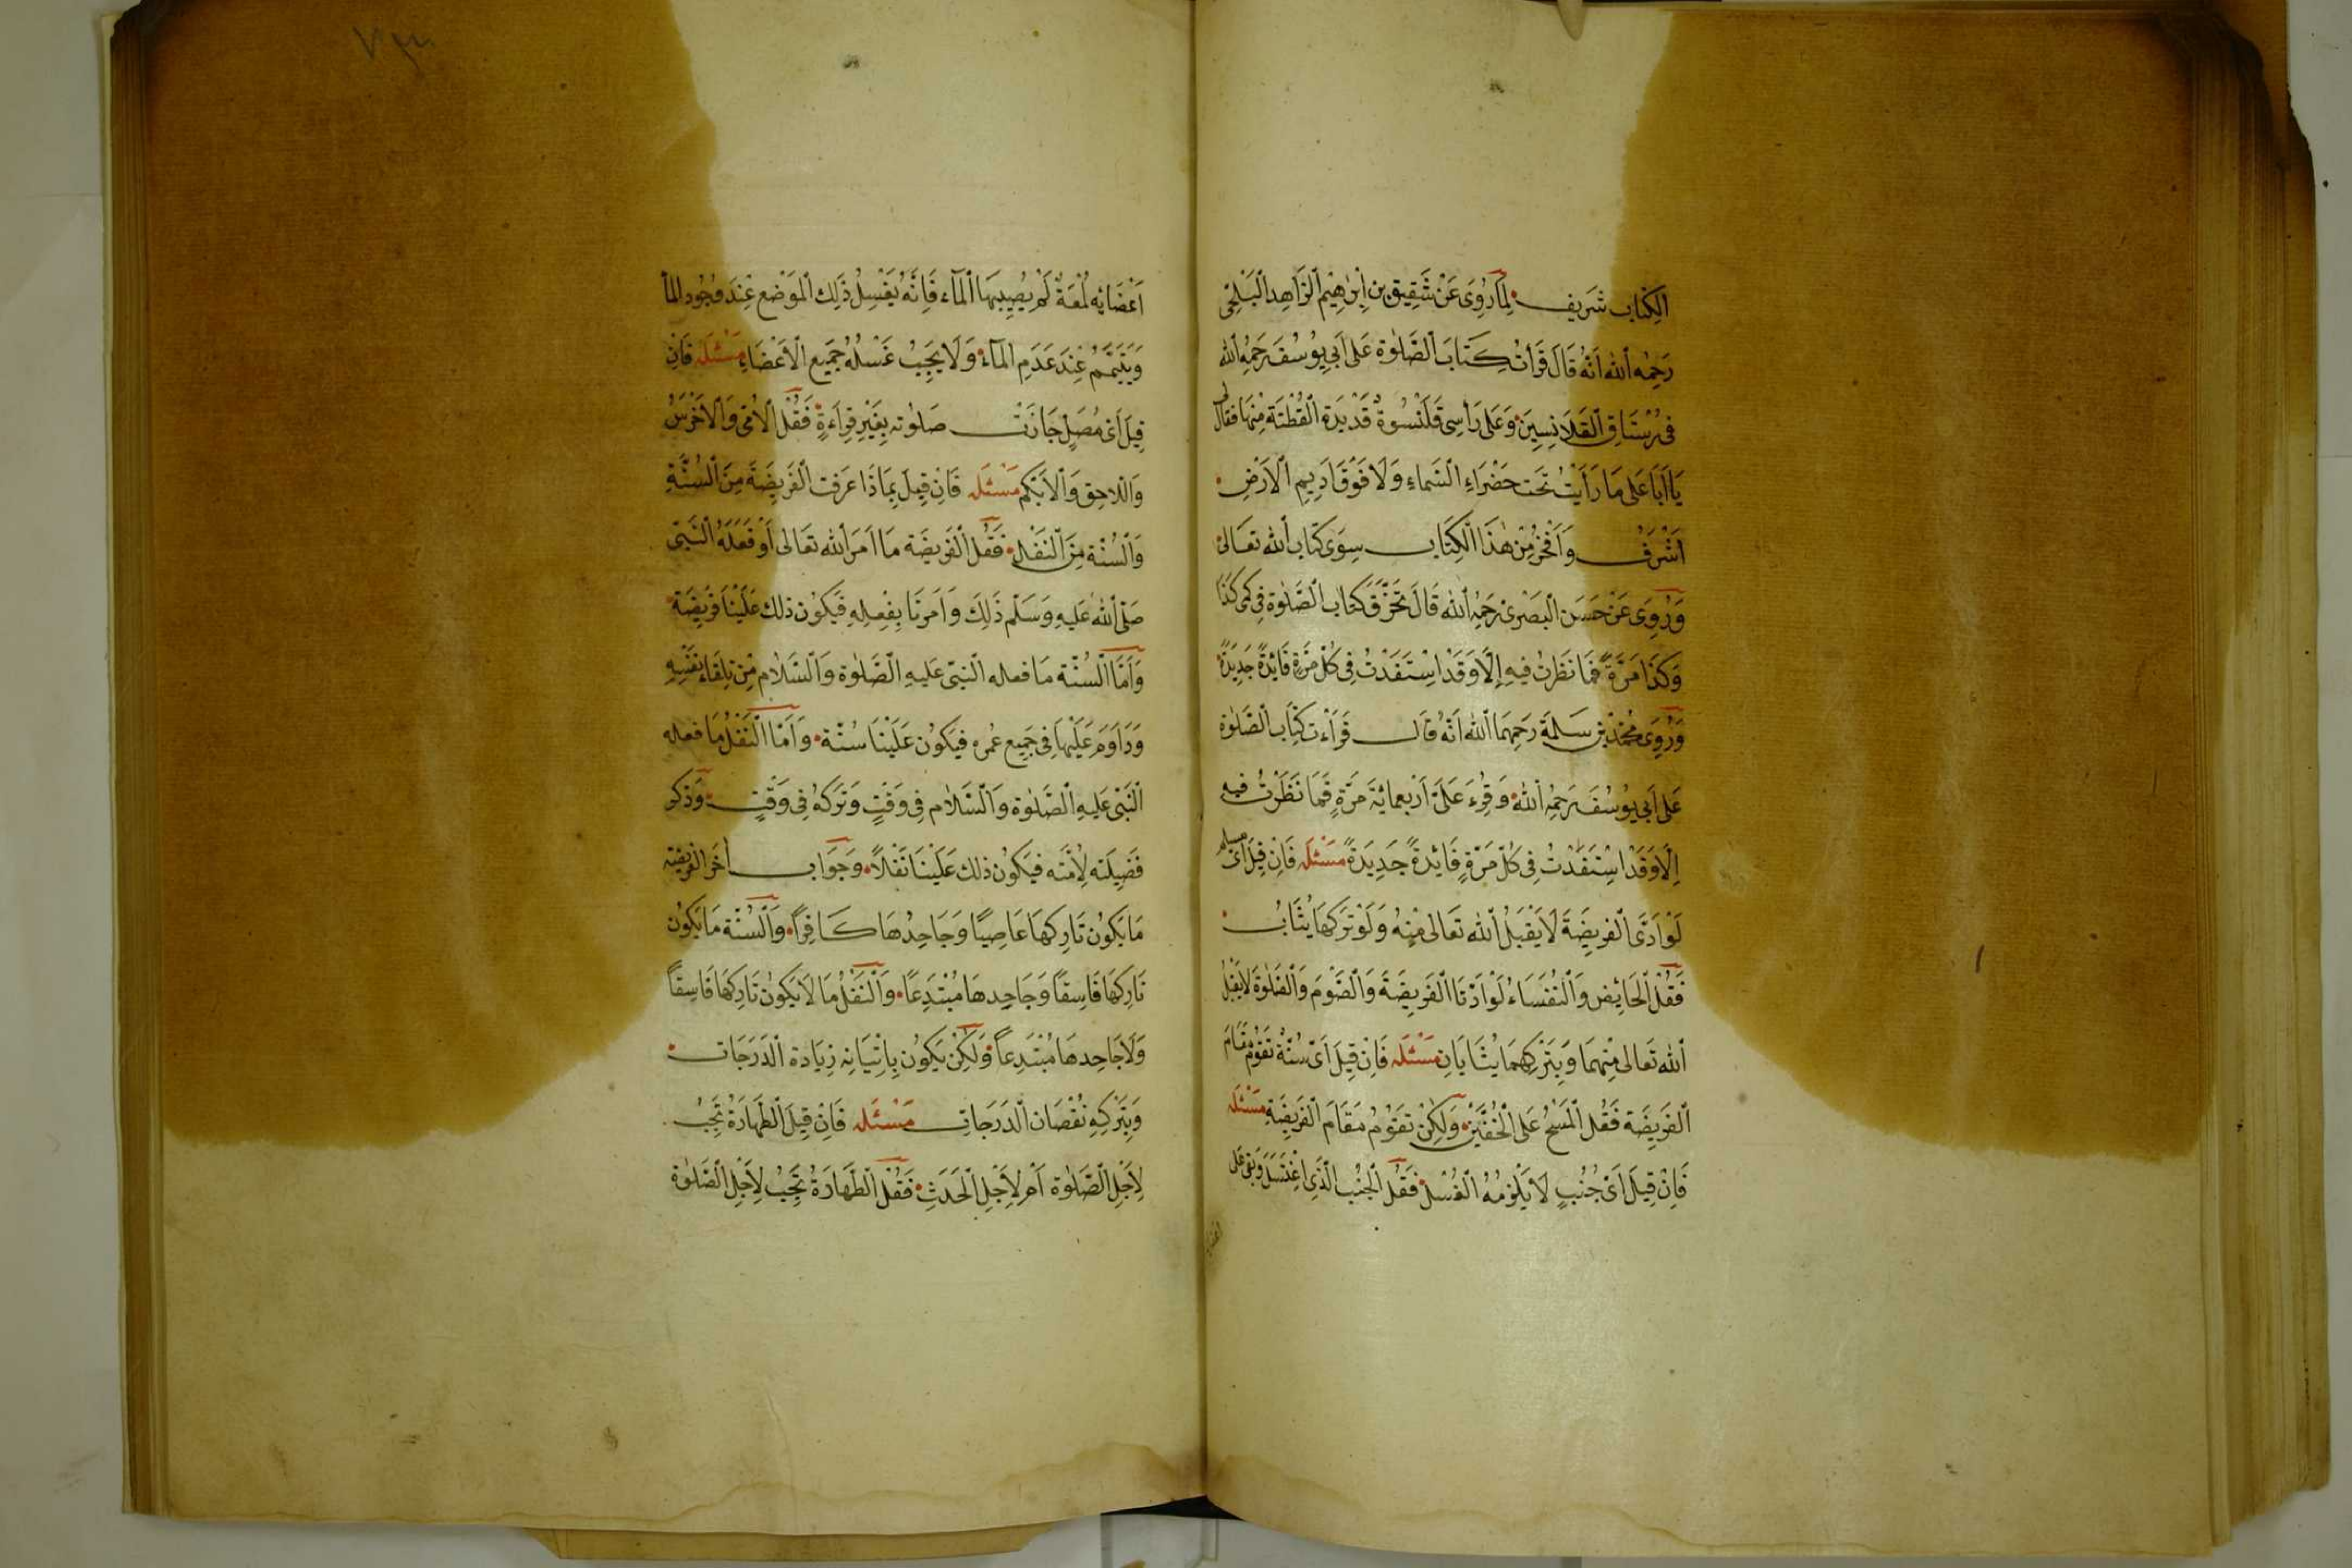 الكِتَابِ شَرِيف لِمَا رُوِيَ عَنْ شَقِيقِ بنِ اِبْرٰهِيْم الزَّاهِدِ البَلْخِي
رَحِمَهُ اللّٰه اَنَّهُ قَالَ قَرَأتُ كِتَابَ الصَّلٰوة عَلى اَبِي يُوسُفَ رَحِمَهُ اللّٰه
فى رُسْتَاقِ القَلَانِسِيِّنَ وَعَلى رَأسِى قَلَنْسُوةٌ قَدْ بَدَتِ القُطْنَة مِنْهَا فقال لى
يَا اَبَا عَلى مَا رَأيْتُ تَحْت خَضْرَاءِ السَّمَاءِ وَلَا فَوْقَ اَدِيمِ الاَرْضِ
اَشْرَفُ وَاَفْخَرُ مِنْ هٰذَا الكِتَابِ سِوَى كِتَابِ اللّٰه تَعَالى
وَرُوِىَ عَنْ حَسَن البَصْرِى رَحِمَهُ اللّٰه قَالَ تَخَرَّقَ كِتَاب الصَّلٰوة فِى كُمِّى كَذَا
وَكَذَا مَرَّةً فَمَا نَظَرْتُ فِيهِ اِلَّا وَقَدْ اسْتَفَدْتُ فِى كُلّ مَرَّةٍ فَائِدَةً جَدِيدَةً
وَرُوِىَ مُحَمَّدُ بْن سَلِمَة رَحِمَهَمَا اللّٰه اَنَّهُ قَالَ قَرَاْت كِتَاب الصَّلٰوة
عَلى اَبِي يُوسُفَ رَحِمَهُ اللّٰه وَقُرِءَ عَلَىَّ اَرْبعمائة مَرَّةٍ فَمَا نَظَرْتُ فيه
اِلَّا وَقَدْ اسْتَفَدْتُ فِى كُلّ مَرَّةٍ فَائِدَةً جَدِيدَةً مَسْئَلَه فَاِنْ قِيلَ اَىّ مسلم
لَوْ اَدَّى الفَرِيضَةَ لَا يَقْبَلُ اللّٰه تَعَالى مِنْهُ وَلَوْ تَرَكَهَا يُثَابُ
فَقُلْ الحَائِض وَالنُّفَسَاءُ لَوْ اَدَّتَا الفَرِيضَةَ وَالصَّوْمَ وَالصَّلٰوةَ لَا يَقْبَل
اللّٰه تَعَالى مِنْهِمَا وَبِتَرْكِهِمَا يُثَابَانِ مَسْئَلَه فَاِنْ قِيلَ اَىّ سُنَّةٍ تَقُوْمُ مَقَامَ
الفَرِيضَة فَقُل المَسْحُ عَلى الخُفَّيْنِ وَلٰكِنْ تَقُوْمُ مَقَامَ الفَرِيضَةِ مَسْئَلَه
فَاِنْ قِيلَ اَىّ جُنُبٍ لَا يَلْزمُهُ الغُسْل فَقُل الجُنُب الَّذِى اغْتَسَلَ وَبقى عَلى
اعضائه
اَعْضَائِه لُمْعَةٌ لَمْ يُصِيبهَا المَاء فَاِنَّهُ يَغْسِلُ ذَلِك المَوْضع عِنْدَ وُجُود المَا
وَيَتَيَمَّمُ عِنْدَ عَدَمِ المَاءُ وَلَا يَجِبُ غَسْلُهُ جَمِيع الاَعْضَاءِ مَسْئَلَه فَاِن
قِيلَ اَىّ مُصَلٍ جَازَتْ صَلٰوته بِغَيْرِ قِرَاءَةٍ فَقُلْ الاُمّى وَالاَخْرَسُ
وَاللاحِق وَالاَبْكَم مَسْئَلَه فَاِنْ قِيلَ بِمَاذَا عَرَفت الفَرِيضَةَ مِنَ السُّنَّةِ
وَالسُّنَّة مِنَ النَّفْلِ فَقُلْ الفَرِيضَة مَا اَمَرَ اللّٰه تَعَالى اَوْ فَعَلَهُ النَّبِىّ
صَلّى اللّٰه عَلَيهِ وَسَلَّم ذَلِكَ وَاَمَرنَا بِفِعْلِهِ فَيَكُوْن ذلك عَلَيْنَا فَرِيضَة
وَاَمَّا السُّنَّة مَا فعله النبّى عَليهِ الصَّلٰوة وَالسَّلَام مِن تِلقَاءِ نَفْسِهِ
وَدَاوَمَ عَلَيْهَا فِى جَمِيع عُمره فَيَكُوْن عَلَيْنَا سُنَّة وَاَمَّا النَّفْلُ مَا فعله
النَّبِى عَليهِ الصَّلٰوة وَالسَّلَام فِى وَقْتٍ وَتَرَكَهُ فِى وَقْتٍ وَذَكَر
فَضِيلَته لِاُمَّتَه فَيَكُوْن ذلك عَلَيْنَا نَفْلاً وَجَوَاب اٰخَر الفَرِيضَة
مَا يَكُوْن تَارِكهَا عَاصِيًا وَجَاحِدُهَا كَافِرًا وَالسُّنَّة مَا يَكُوْن
تَارِكهَا فَاسِقًا وَجَاحِدهَا مُبْتَدِعًا وَالنَّفْلُ مَا لَا يَكُوْن تَارِكهَا فَاسِقًا
وَلَا جَاحِدهَا مُبْتَدِعاً وَلٰكِنْ يَكُوْن بِاِتْيَانِه زِيَادة الدَّرَجَات
وَبِتَرْكِهِ نُقْصَان الدَّرَجَاتِ مَسْئَلَه فَاِنْ قِيلَ الطَّهَارَةُ تَجِبُ
لِاَجْلِ الصَّلٰوة اَمْ لِاَجْلِ الحَدَثِ فَقُلْ الطَّهَارَةُ تَجِبُ لِاَجْلِ الصَّلٰوة